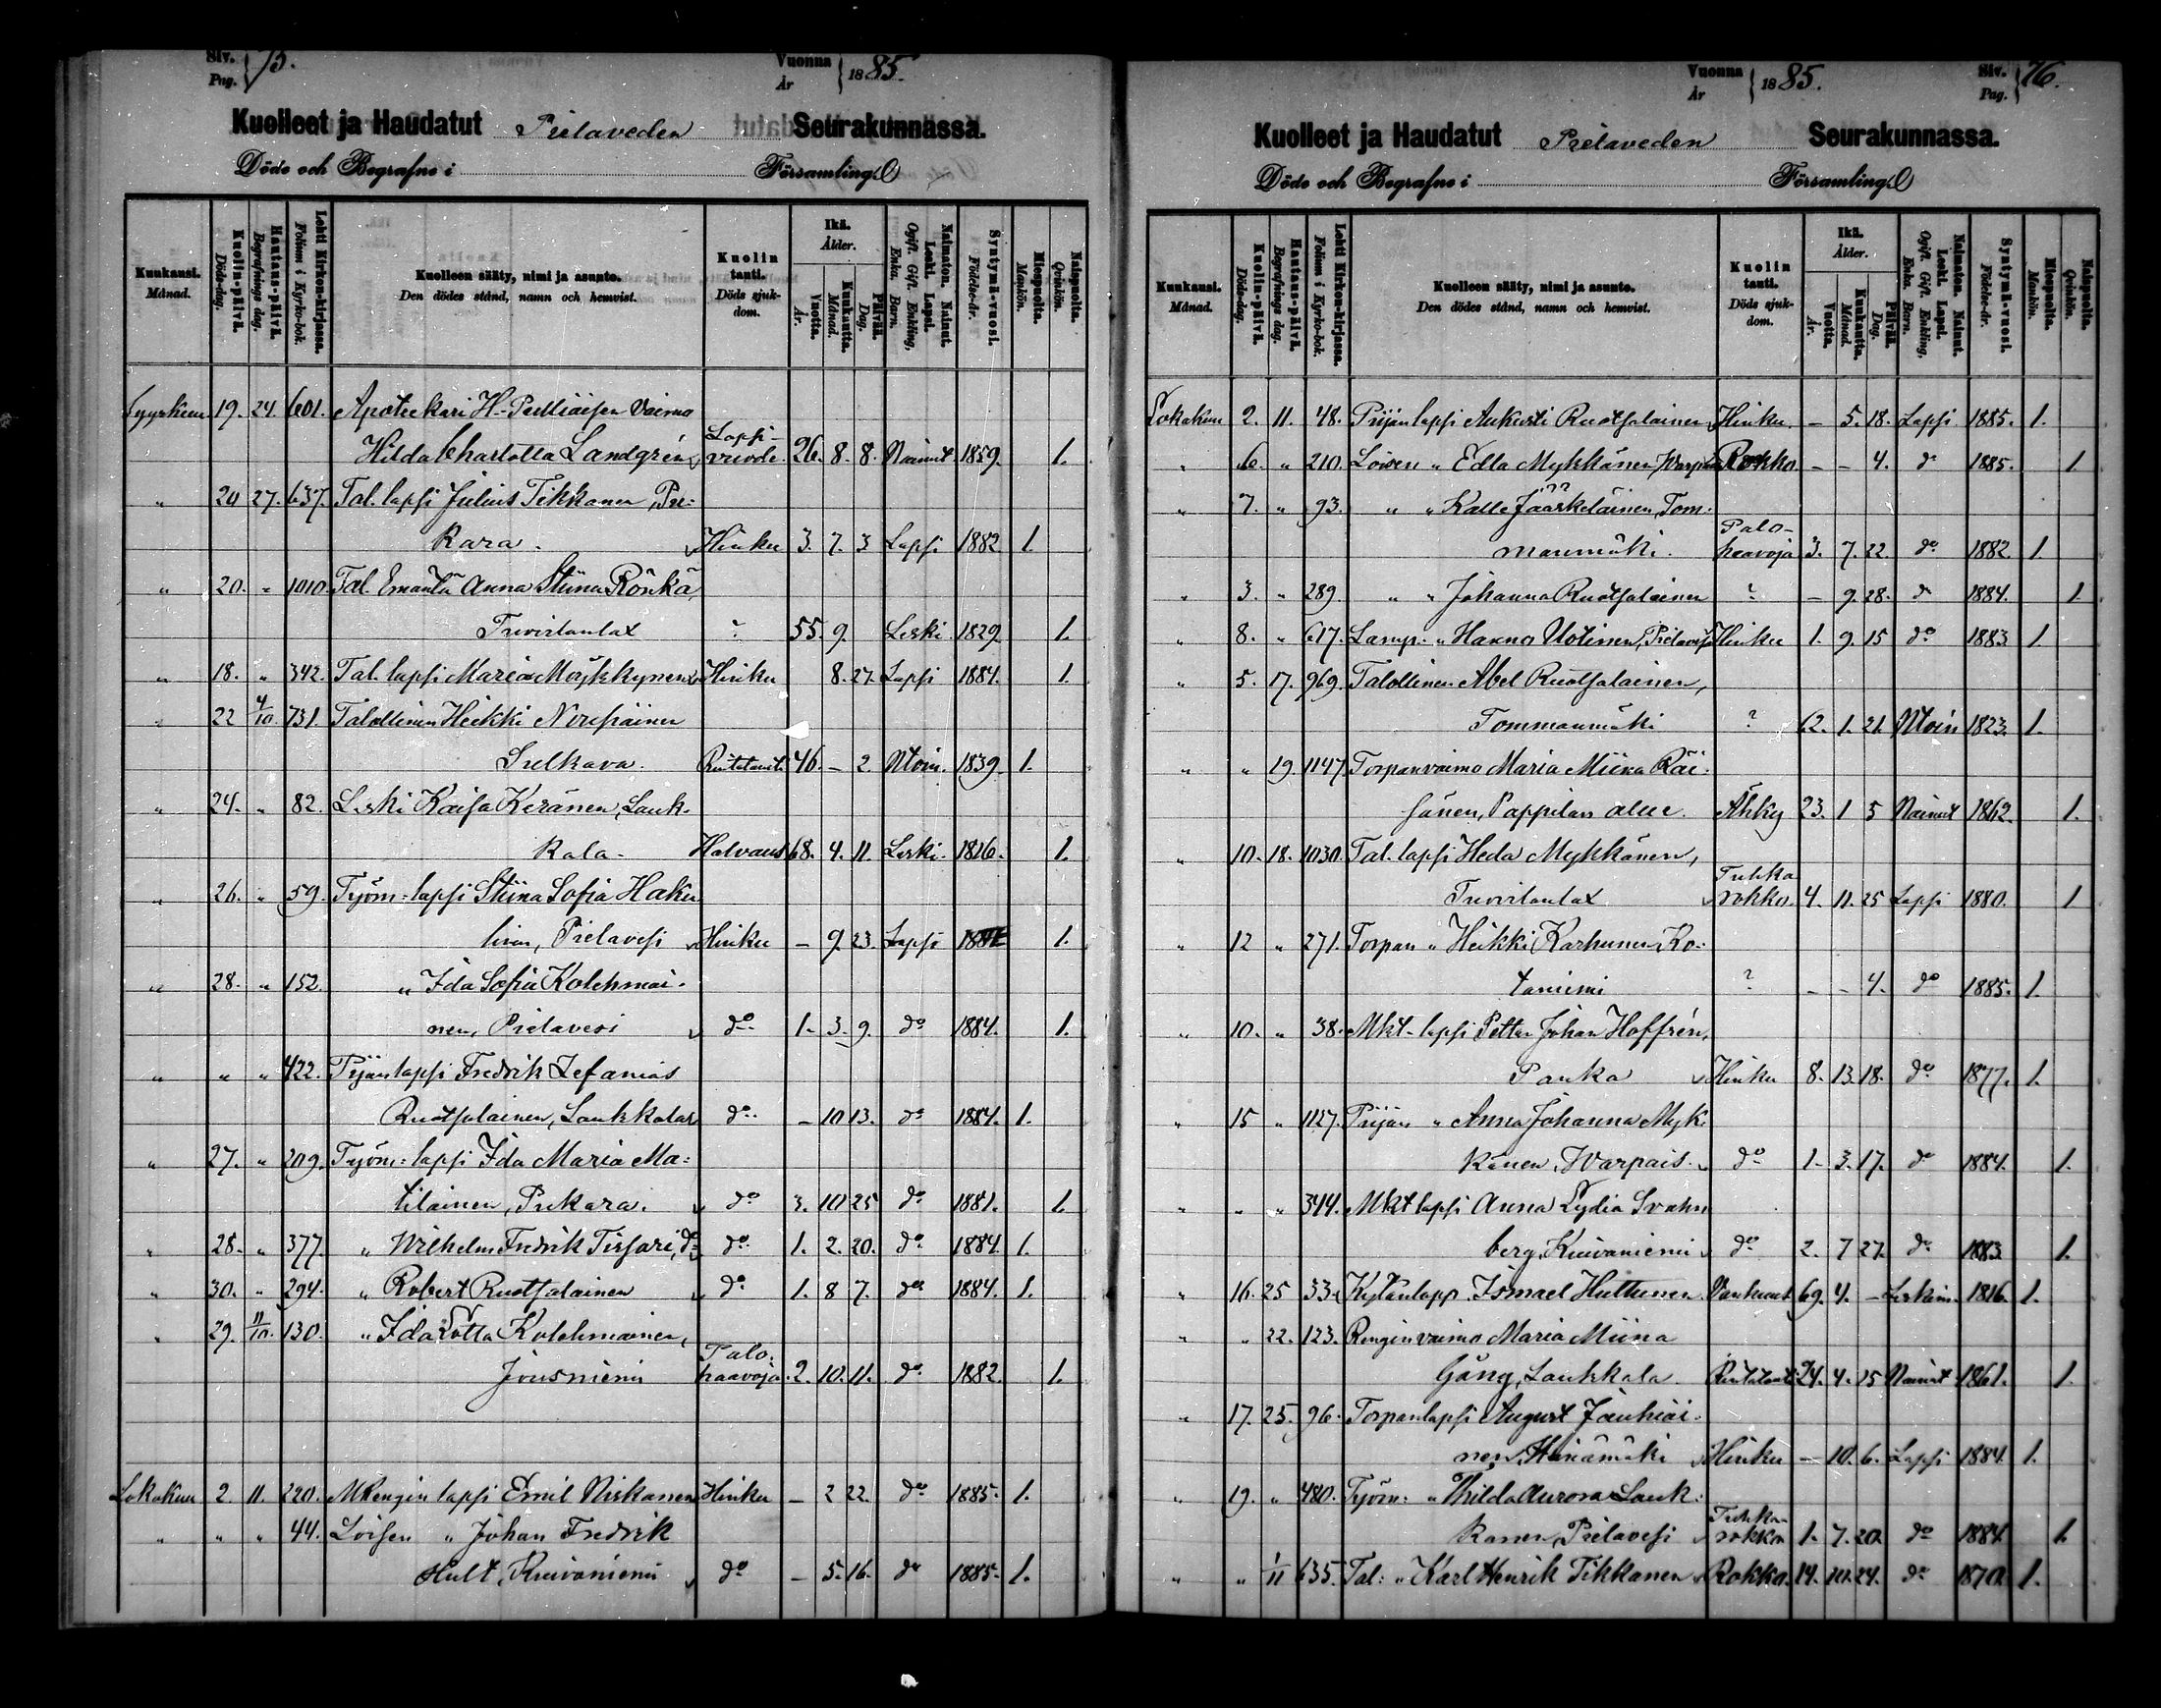 Siv. Pag. 75. Vuonna År 1885.
Kuolleet ja Haudatut Pielaveden Seurakunnassa.
Döde och Begrafne i Församling.
Kuukausi. Månad. Kuolin-päivä. Döds-dag. Hautaus-päivä. Begrafnings dag. Lehti Kirkon-kirjassa. Folium i Kyrko-bok. Kuolleen sääty, nimi ja asunto. Den dödes stånd, namn och hemvist. Kuolin tauti. Döds sjukdom. Ikä. Ålder. Vuotta. År. Kuukautta. Månad. Päivää. Dag. Naimaton. Nainut. Leski. Lapsi. Ogift. Gift. Enkling, Enka. Barn. Syntymä-vuosi. Födelse-år. Miespuolta. Mankön. Naispuolta. Qvinkön.
Syyskuu 19. 24. 601. Apotekari H. Vaimo
Hilda Charlotta Landgrén Lapsi-vuode. 26. 8. 8. Nainut 1859. 1.
" 20 27. 637. Tal. lapsi Julius Tikkanen, Pu-
kara. Hinku 3. 7. 3 Lapsi 1882 1.
" 20. " 1010. Tal. Emäntä Anna Stiina Rönkä,
? 55. 9. Leski 1829. 1.
" 18. " 342. Tal. lapsi Maria Möykkynen Hinku 8. 27. Lapsi 1884. 1.
" 22 4/10. 731. Talollinen Heikki
Sulkava. Rintataut. 46. – 2. Ntoin. 1839. 1.
" 24. " 82. Leski Kaisa Keränen, Lauk-
kala. Halvaus 68. 4. 11. Leski. 1816. 1.
" 26. " 59. Työm: lapsi Stiina Sofia Haku
linen, Pielavesi Hinku – 9. 23. Lapsi 1884 1.
" 28. " 152. " Ida Sofia Kolehmai-
nen, Pielavesi do 1. 3. 9. do 1884. 1.
" " " 422. Pijan lapsi Fredrik Zefanias
Ruotsalainen, Laukkala do – 10 13. do 1884. 1.
" 27. " 209. Työm: lapsi Ida Maria Ma-
tilainen, Pukara. do 3. 10 25 do 1881. 1.
" 28. " 377. " Wilhelm Fredrik Tissari, do do 1. 2. 20. do 1884 1.
" 30. " 294. " Robert Ruotsalainen do 1. 8 7. do 1884. 1.
" 29. 11/10. 130. " Ida Lotta Kolehmainen,
Jousniemi Palohaavoja. 2. 10. 11. do 1882. 1.
Lokakuu 2. 11. 220. MRengin lapsi Emil Niskanen Hinku – 2 22. do 1885. 1.
" " " 44. Loisen " Johan Fredrik
Hult, Kuivaniemi do – 5. 16. do 1885. 1.
Vuonna År 1885. Siv. Pag. 76.
Kuolleet ja Haudatut Pielaveden Seurakunnassa.
Döde och Begrafne i Församling.
Kuukausi. Månad. Kuolin-päivä. Döds-dag. Hautaus-päivä. Begrafnings dag. Lehti Kirkon-kirjassa. Folium i Kyrko-bok. Kuolleen sääty, nimi ja asunto. Den dödes stånd, namn och hemvist. Kuolin tauti. Döds sjukdom. Ikä. Ålder. Vuotta. År. Kuukautta. Månad. Päivää. Dag. Naimaton. Nainut. Leski. Lapsi. Ogift. Gift. Enkling, Enka. Barn. Syntymä-vuosi. Födelse-år. Miespuolta. Mankön. Naispuolta. Qvinkön.
Lokakuu 2. 11. 48. Piijan lapsi Aukusti Ruotsalainen Hinku. – 5. 18. Lapsi 1885. 1.
" 6. " 210. Loisen " Edla Mykkänen, Rokko. – – 4. do 1885. 1
" 7. " 93. " " Kalle Jääskeläinen, Tom-
manmäki. Palohaavoja 3. 7. 22. do 1882. 1.
" 3. " 289. " " Johanna Ruotsalainen ? – 9. 28. do 1884. 1.
" 8. " 617. Lamp. " Hanna Utinen, Pielavesi Hinku 1. 9. 15 do 1883 1.
" 5. 17. 969. Talollinen Abel Ruotsalainen,
Tommanmäki ? 62. 1. 21. Ntoin 1823. 1.
" " 19. 1147. Torpan vaimo Maria Miina Räi-
sänen, Pappilan alue. Ähky 23. 1 5 Nainut 1862. 1.
" 10. 18. 1030. Tal. lapsi Heda Mykkänen,
Tuhkarokko. 4. 11. 25 Lapsi 1880. 1
" 12 " 271. Torpan " Heikki Karhunen, Ko-
taniemi ? – – 4. do 1885. 1.
" 10. " 38. Mkt. lapsi Petter Johan Hoffrén,
Panka Hinku 8. 13. 18. do 1877. 1.
" 15 " 1127. Piijan " Anna Johanna Myk-
känen, Warpais. do 1. 3. 17. do 1884. 1.
" " " 344. Mkt lapsi Anna Lydia Svahn
berg, Kuivaniemi do 2. 7 27. do 1883 1.
" 16. 25 33. Kylänlapp. Ismael Huttunen Vanhuus 69. 4. – Leskim. 1816. 1.
" " 22. 123. Rengin vaimo Maria Miina
Gång, Laukkala Rintataut. 24. 4. 15 Nainut 1861. 1.
" 17. 25. 96. Torpan lapsi August Jauhiai-
nen, Heinämäki Hinku – 10. 6. Lapsi 1884. 1.
" 19. " 480. Työm: " Hilda Aurora Lauk-
kanen, Pielavesi Tuhkarokko 1. 7. 20. do 1884 1.
" " 1/11 635. Tal: " Karl Henrik Tikkanen Rokko. 14. 10. 24. do 1870. 1.